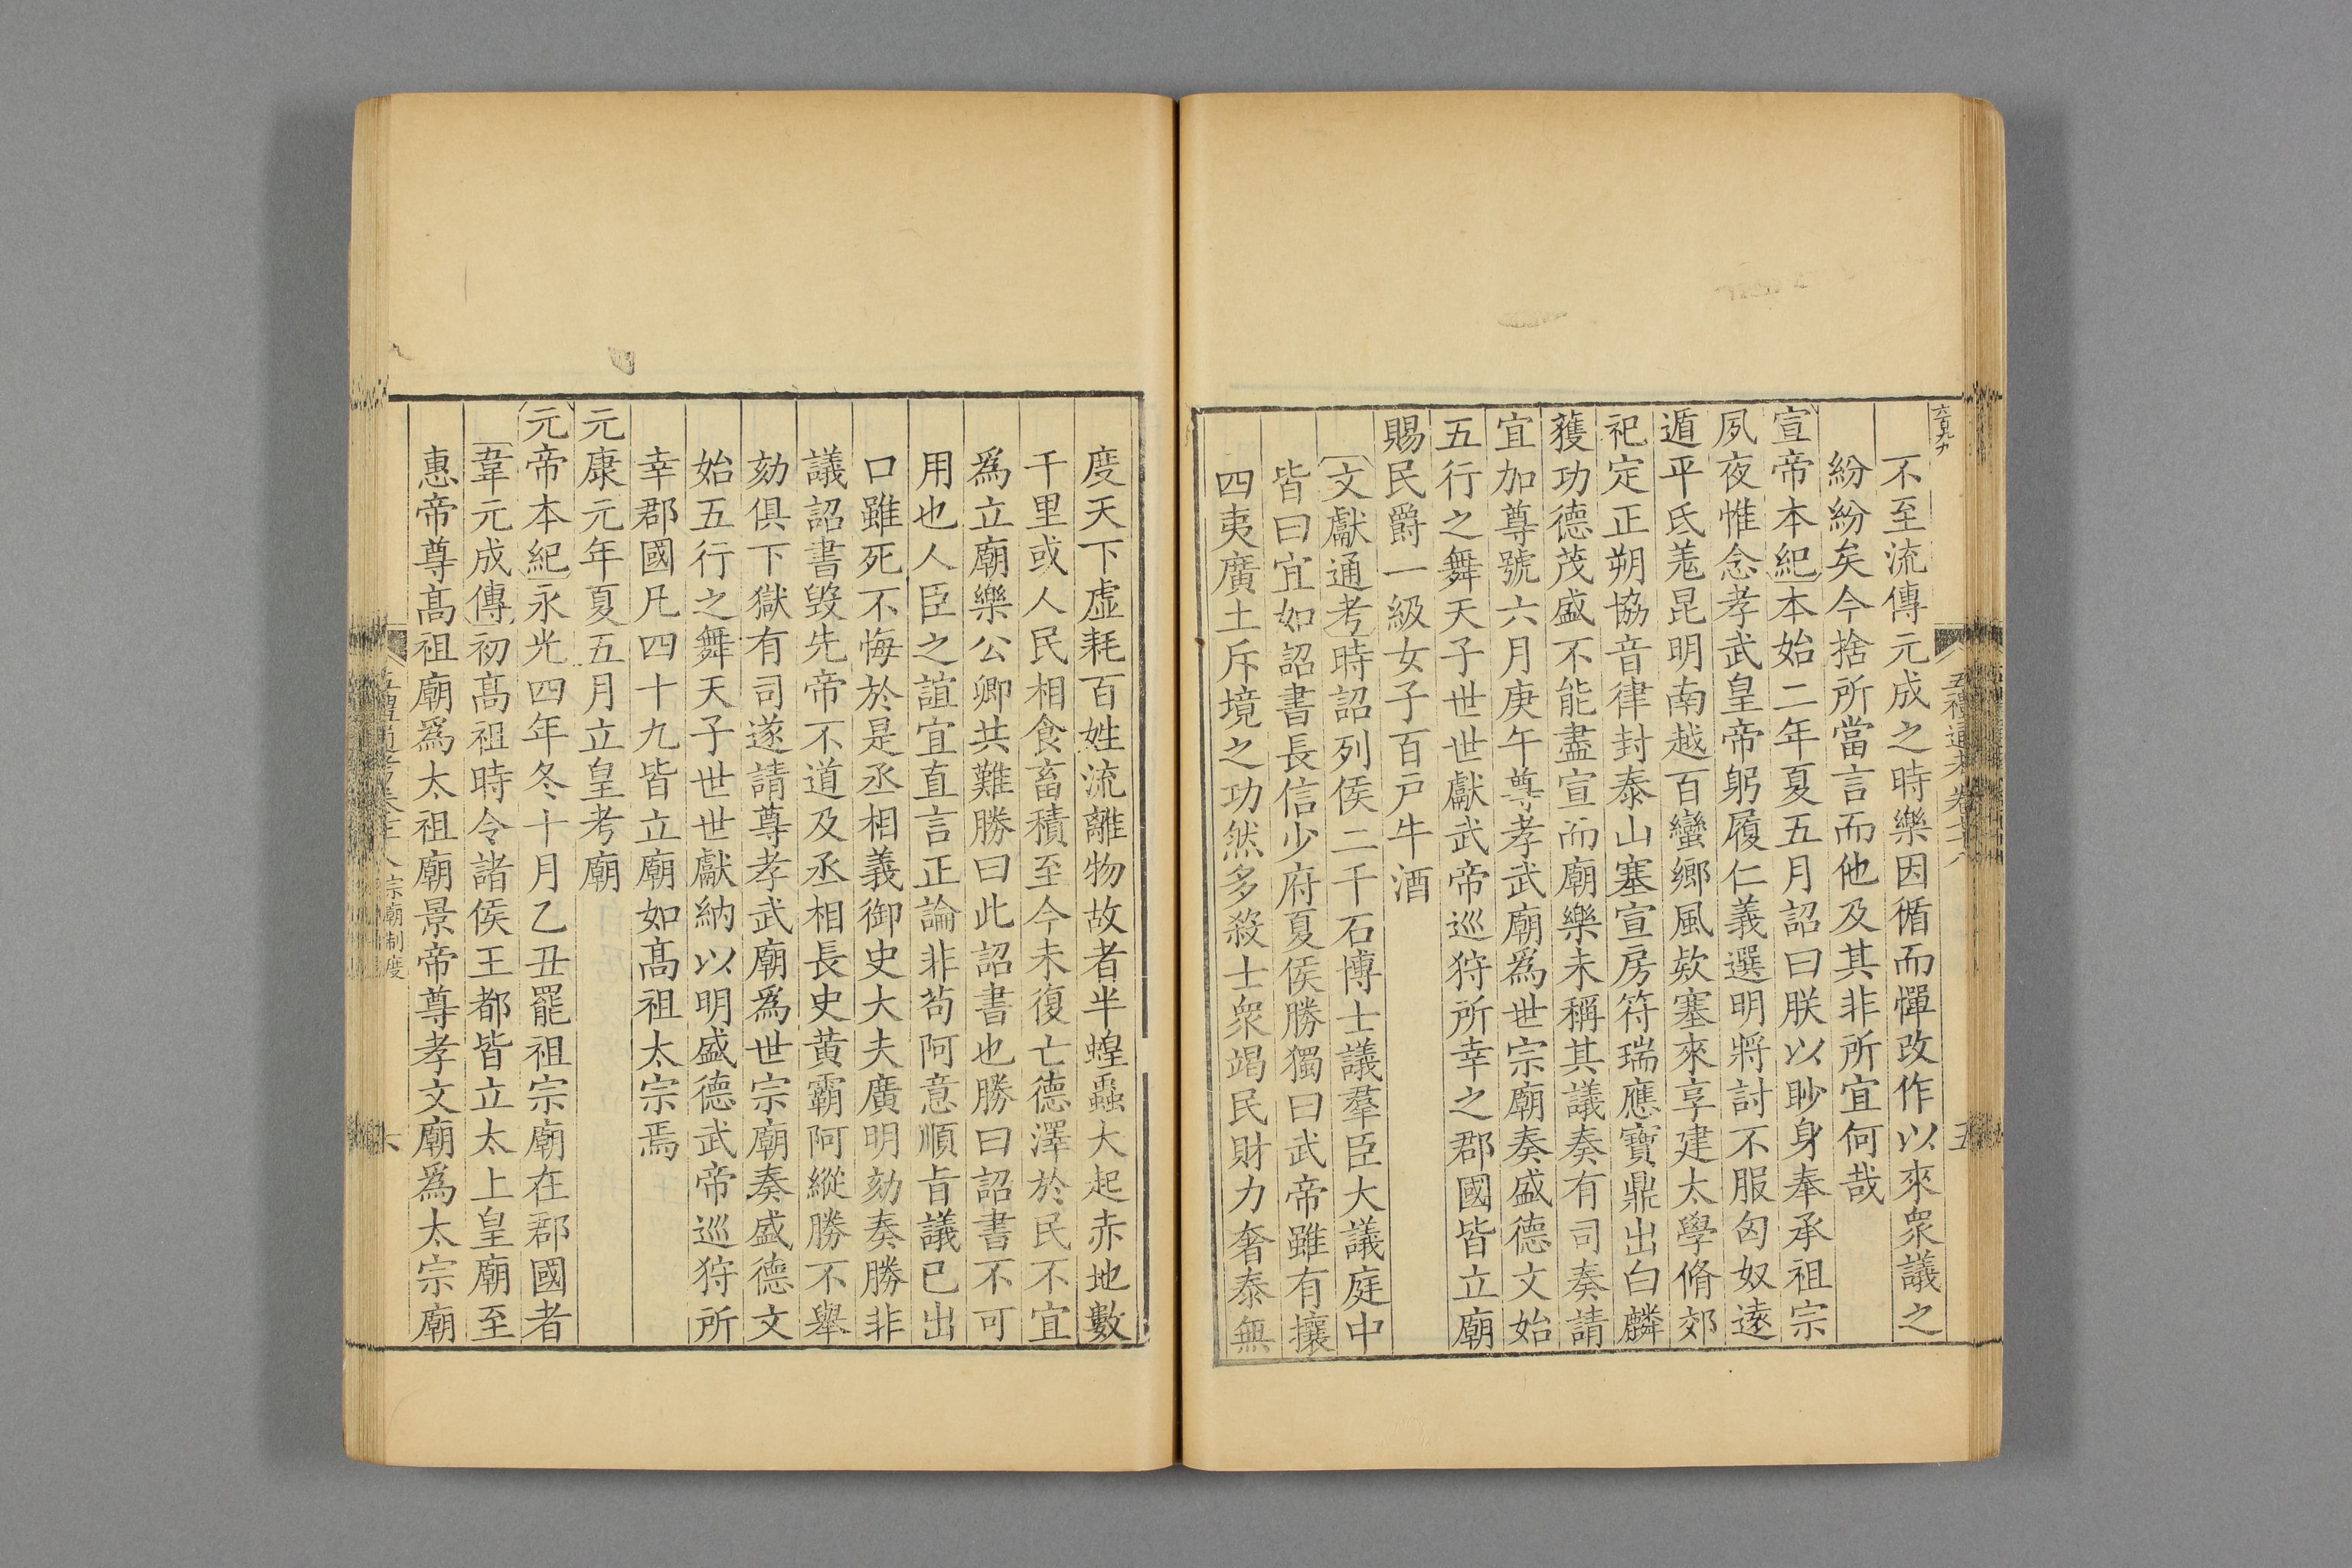 不至流傳元成之時樂因循而憚改作以來衆議之
紛紛矣今捨所當言而他及其非所宜何哉
宣帝本紀本始二年夏五月詔曰朕以眇身奉承祖宗
夙夜惟念孝武皇帝躬履仁義選明將討不服匈奴遠
遁平氐羗昆明南越百蠻鄉風欵塞來享建太學脩郊
祀定正朔協音律封泰山塞宣房符瑞應寶鼎出白麟
獲功德茂盛不能盡宣而廟樂未稱其議奏有司奏請
宜加尊號六月庚午尊孝武廟爲世宗廟奏盛德文始
五行之舞天子世世獻武帝巡狩所幸之郡國皆立廟
賜民爵一級女子百戸牛酒
文獻通考時詔列侯二千石博士議羣臣大議庭中
皆曰宜如詔書長信少府夏侯勝獨曰武帝雖有攘
四夷廣土斥境之功然多殺士衆竭民財力奢泰無
度天下虛耗百姓流離物故者半蝗蟲大起赤地數
千里或人民相食畜積至今未復亡德澤於民不宜
爲立廟樂公卿共難勝曰此詔書也勝曰詔書不可
用也人臣之誼宜直言正論非苟阿意順旨議已出
口雖死不悔於是丞相義御史大夫廣明劾奏勝非
議詔書毀先帝不道及丞相長史黄霸阿縱勝不舉
劾俱下獄有司遂請尊孝武廟爲世宗廟奏盛德文
始五行之舞天子世世獻納以明盛德武帝巡狩所
幸郡國凡四十九皆立廟如髙祖太宗焉
元康元年夏五月立皇考廟
元帝本紀永光四年冬十月乙丑罷祖宗廟在郡國者
韋元成傳初髙祖時令諸侯王都皆立太上皇廟至
惠帝尊髙祖廟爲太祖廟景帝尊孝文廟爲太宗廟
宗廟制度